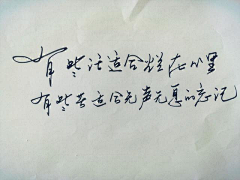 有些话适合烂在心里
有些苦适合无声无息的忘记